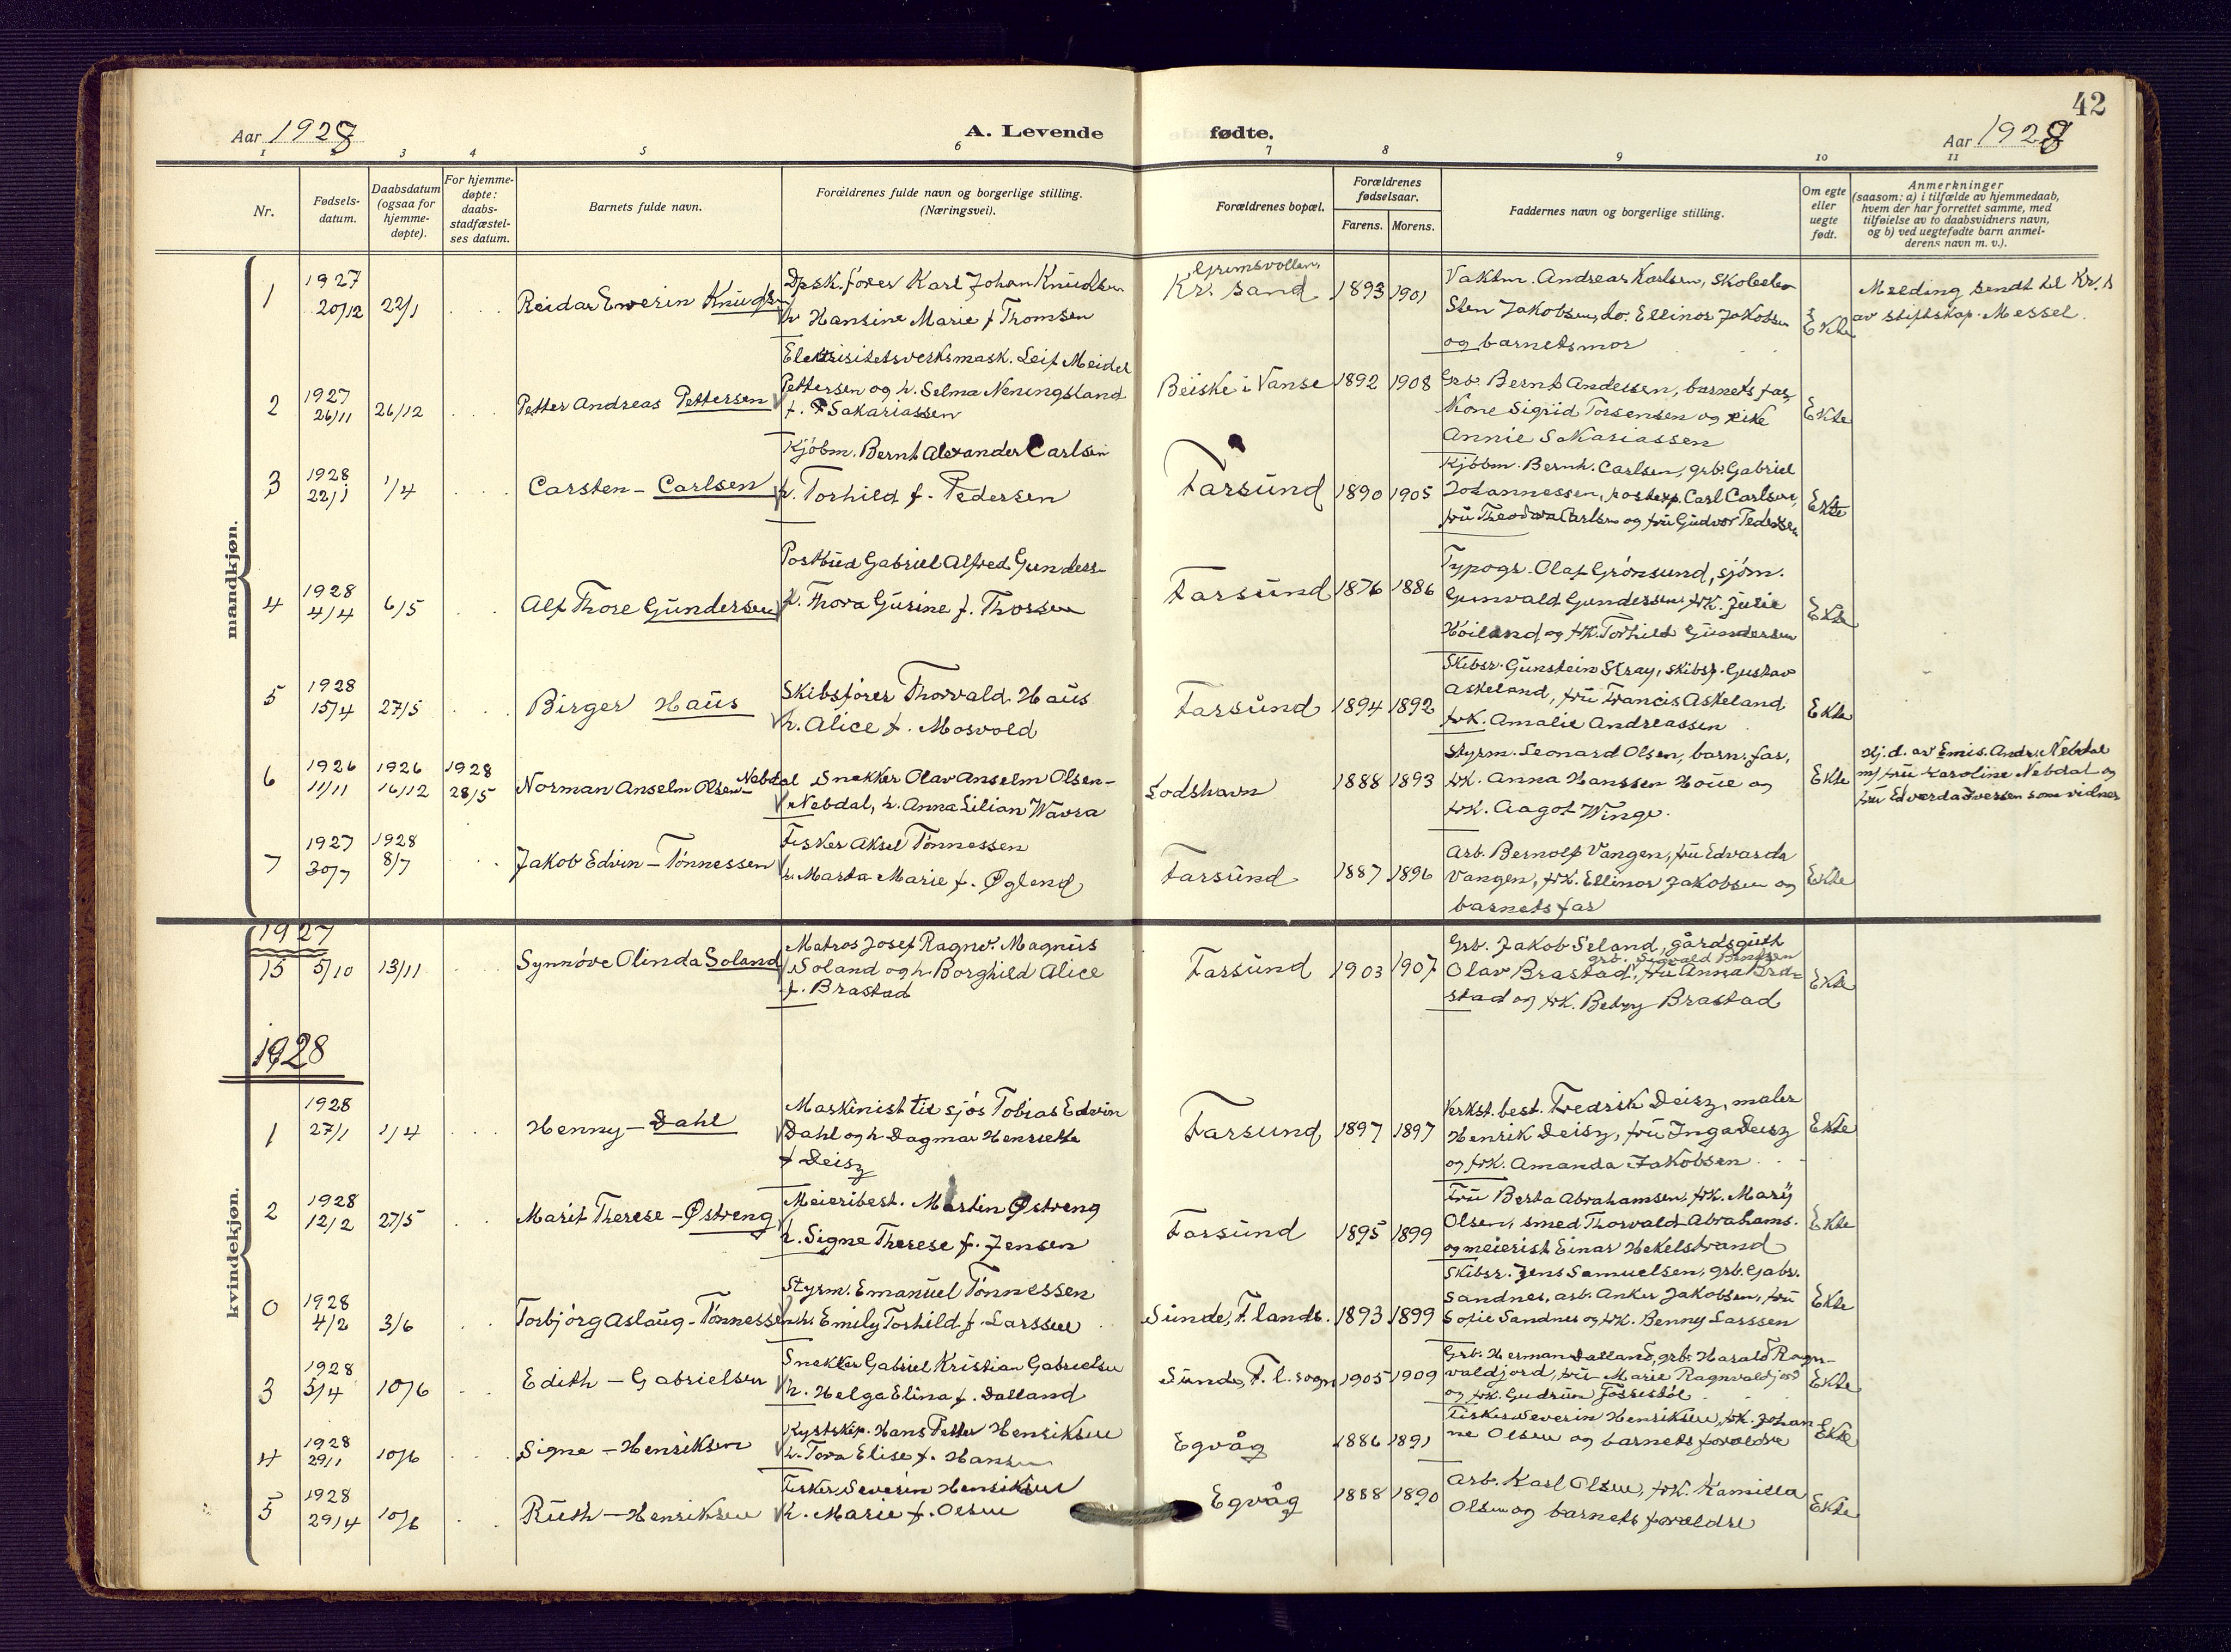 42
Aar 1928
A. Levende
fødte.
Aar 1928
1 2 3 4 5 6 7 8 9 10 11
Nr.
Fødsels-
datum.
Daabsdatum
(ogsaa for
hjemme-
døpte).
For hjemme-
døpte:
daabs-
stadfæstel-
ses datum.
Barnets fulde navn.
Forældrenes fulde navn og borgerlige stilling.
(Næringsvei).
Forældrenes bopæl.
Forældrenes
fødselsaar.
Farens. Morens.
Faddernes navn og borgerlige stilling.
Om egte
eller
uegte
født.
Anmerkninger
(saasom: a) i tilfælde av hjemmedaab,
hvem der har forrettet samme, med
tilføielse av to daabsvidners navn,
og b) ved uegtefødte barn anmel-
derens navn m. v.).
mandkjøn.
1
1927
20/12 22/1
Reidar Ewerin Knudsen
Dpsk. fører Karl Johan Knudsen
h Hansine Marie f Thomsen
Grimsvollen,
Kr. sand
1893 1901
Vaktm. Andreas Karlsen, Skoeler
Sten Jakobsen, do. Ellinor Jakobsen
og barnetsmor
Ekte
Melding sendt til Kr. s
av stiftskap. Messel.
2
1927
26/11 26/12
Petter Andreas Pettersen
Elektrisitetsverksmask. Leif Meidel
Pettersen og h. Selma Neningsland
f. Sakariassen
Beiske i Vanse
1892 1908
Grb. Bernt Andessen, barnets far,
Kone Sigrid Torsensen og pike
Annie Sakariassen
Ekte
3
1928
22/1 1/4
Carsten - Carlsen
Kjöbm. Bernt Alexander Carlsen
h. Torhild f. Pedersen
Farsund
1890 1905
Kjöbm. Bernh. Carlsen, grb. Gabriel
Johannessen, postexp. Carl Carlsen,
fru Theodora Carlsen og fru Gudvor Pedersen
Ekte
4
1928
4/4 6/5
Alf Thore Gundersen
Postbud Gabriel Alfred Gunders-
h. Thora Gurine f. Thorsen
Farsund
1876 1886
Typogr. Olaf Grönsund, sjöm.
Gunvald Gundersen, frk. Julie
Hoiland og frk. Torhild Gundersen
Ekte
5
1928
15/4 27/5
Birger Haus
Skibsförer Thorvald Haus
h. Alice f. Mosvold
Farsund
1894 1892
Skibsr. Gunstein Stray, skibsf. Gustav
Askeland, fru Francis Askeland
frk. Amalie Andreassen
Ekte
6
1926 1926 1928
11/11 16/12 28/5
Norman Anselm Olsen-Nebdal
Snekker Olav Anselm Olsen-
Nebdal, h. Anna Lilian Wavra
Lodshavn
1888 1893
Styrm. Leonard Olsen, barn. far,
frk. Anna Hanssen Houe og
frk. Aagot Winge.
Ekte
Hj. d. av Emis. Andr. Nebdal
m/ fru Karoline Nebdal og
fru Edvarda Iversen som vidner
7
1927 1928
30/7 8/7
Jakob Edvin - Tönnessen
Fisker Aksel Tönnessen
h. Marta Marie f. Øglend
Farsund
1887 1896
Arb. Bernolf Vangen, fru Edvarda
Vangen, frk. Ellinor Jakobsen og
barnets far
Ekte
kvindekjøn.
1927
15 5/10 13/11
Synnöve Olinda Soland
Matros Josef Ragnv. Magnus
Soland og h. Borghild Alice
f. Brastad
Farsund
1903 1907
Grb. Jakob Seland, gårdsgutt
grb. Sigvald Bentsen
Olav Brastad, fru Anna Bra-
stad og frk. Betzy Brastad
Ekte
1928
1
1928
27/1 1/4
Henny - Dahl
Maskinist til sjös Tobias Edvin
Dahl og h. Dagmar Henriette
f Deisz
Farsund
1897 1897
Verkst. best. Fredrik Deisz, maler
Henrik Deisz, fru Inga Deisz
og frk. Amanda Jakobsen
Ekte
2
1928
12/2 27/5
Marit Therese - Østreng
Meieribest. Martin Østreng
h. Signe Therese f. Jensen
Farsund
1895 1899
Fru Berta Abrahamsen, frk. Mary
Olsen, smed Thorvald Abrahams.
og meierist Einar Hekelstrand
Ekte
0
1928
4/2 3/6
Torbjörg Aslaug - Tönnessen
Styrm. Emanuel Tönnessen
h. Emily Torhild f. Larssen
Sunde, F. lands.
1893 1899
Skibsr. Jens Samuelsen, grb. Gabr.
Sandnes, arb. Anker Jakobsen, fru
Sofie Sandnes og frk. Benny Larssen
Ekte
3
1928
5/4 10/6
Edith - Gabrielsen
Snekker Gabriel Kristian Gabrielsen
h. Helga Elina f. Dalland
Sunde, F. l. sogn
1905 1909
Grb. Herman Dalland, grb. Harald Ragn-
valdjord, fru Marie Ragnvaldjord
og frk. Gudrun Fossestöl
Ekte
4
1928
29/1 10/6
Signe - Henriksen
Kystskip. Hans Petter Henriksen
h. Tora Elise f. Hansen
Egvåg
1886 1891
Fisker Severin Henriksen, frk. Johan
ne Olsen og barnets foreldre
Ekte
5
1928
29/4 10/6
Ruth - Henriksen
Fisker Severin Henriksen
h. Marie f. Olsen
Egvåg
1888 1890
Arb. Karl Olsen, frk. Kamilla
Olsen og barnets foreldre
Ekte